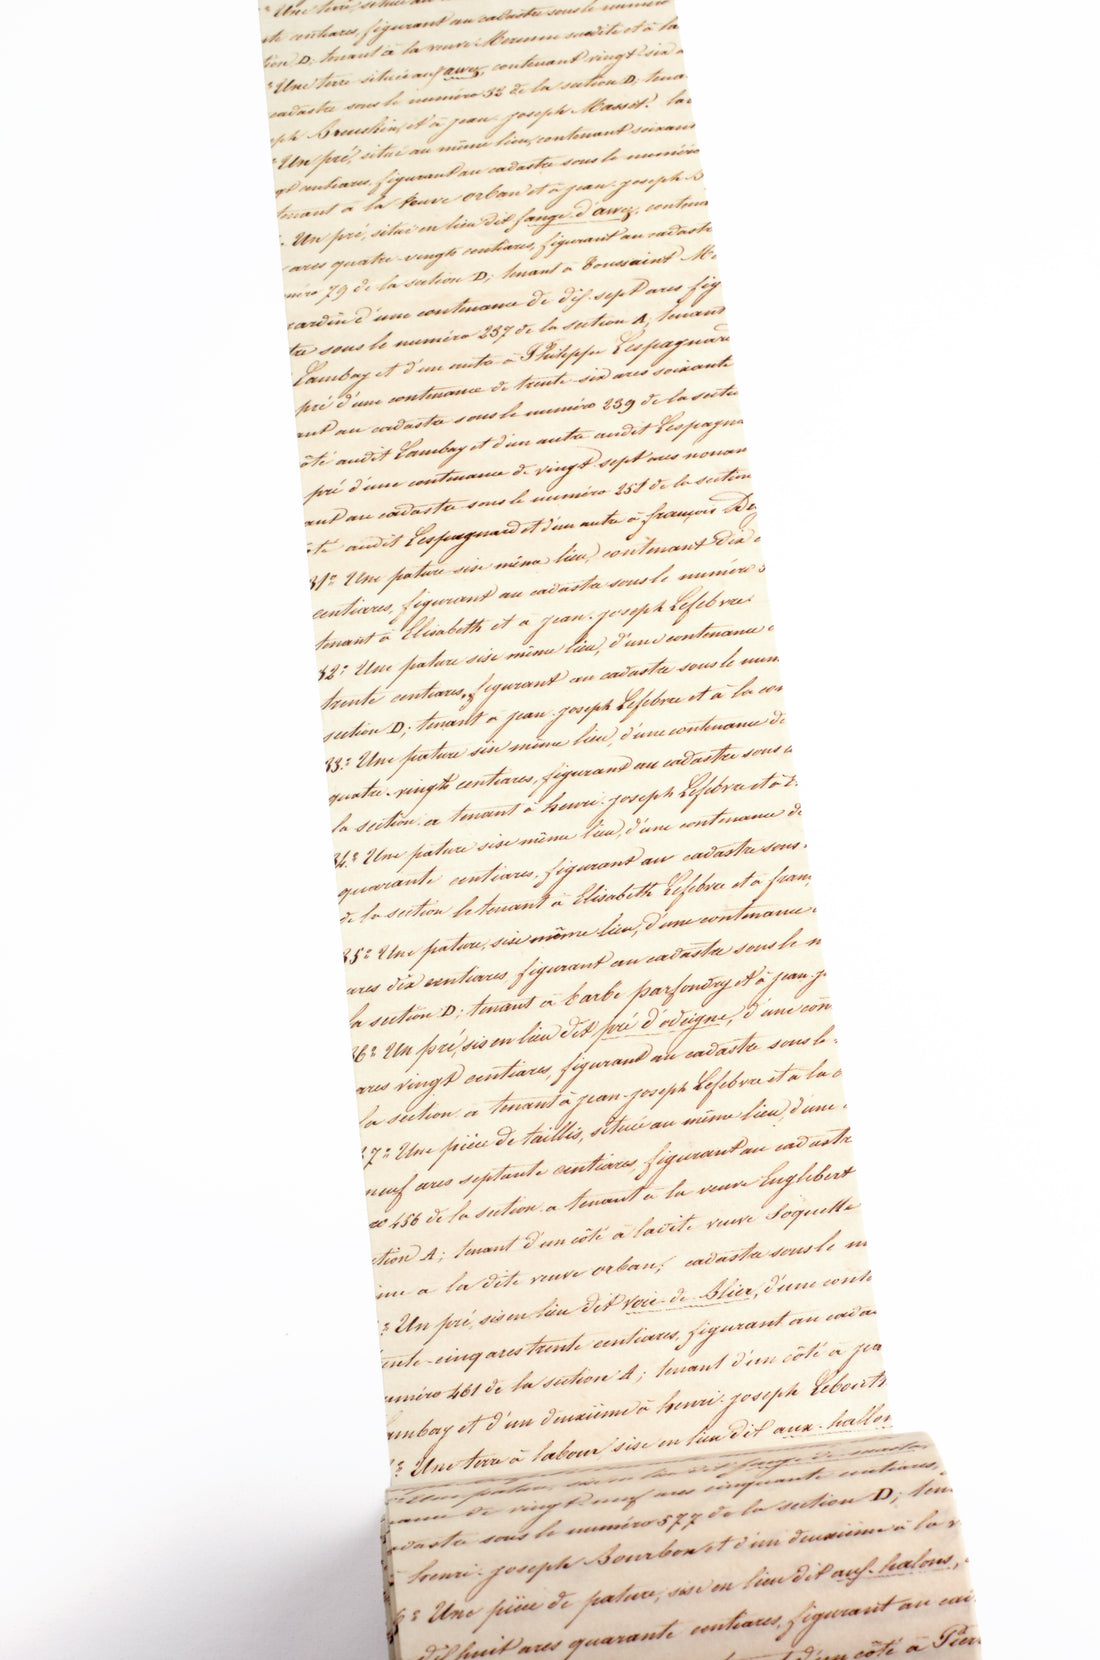 Une terre, située au
centiares, figurant au cadastre sous le numéro
tion D; tenant à la veuve Moreau susdite et à la
Une terre située auf awez, contenant vingt six a
cadastre sous le numéro 52 de la section D, tena
eph et à jean-joseph Masset. la
Un pré, situé au même lieu, contenant soixant
gt centiares, figurant au cadastre sous le numéro
tenant à la veuve orban et à jean-joseph
Un pré, situé en lieu dit fange d'awez, conten
ares quatre-vingts centiares, figurant au cadastr
méro 79 de la section D; tenant à Toussaint M
jardin d'une contenance de dix-sept ares fig
tre sous le numéro 237 de la section A; tenant
Lambay et d'un autre à Philippe Lespagnard
pré d'une contenance de trente-six ares soixante
ant au cadastre sous le numéro 239 de la secti
ôté audit Lambay et d'un autre audit Lespagn
pré d'une contenance de vingt-sept ares nonan
ant au cadastre sous le numéro 251 de la section
ôté audit Lespagnard et d'un autre à françois De
31° Une pature sise même lieu, contenant Dix
centiares, figurant au cadastre sous le numéro
tenant à Elisabeth et à jean-joseph Lefebvre.
32° Une pature sise même lieu, d'une contenance
trente centiares, figurant au cadastre sous le num
section D; tenant à jean-joseph Lefebvre et à la
33° Une pature sise même lieu, d'une contenance de
quatre-vingts centiares, figurant au cadastre sous
la section a tenant à henri-joseph Lefebvre et à
34° Une pature sise même lieu, d'une contenance de
quarante centiares, figurant au cadastre sous
de la section b tenant à Elisabeth Lefebvre et à fran
35° Une pature, sise même lieu, d'une contenance
ares dix centiares, figurant au cadastre sous le n
la section D; tenant à barbe parfondry et à jean-j
36° Un pré, sis en lieu dit pré d'odeigne, d'une con
ares vingt centiares, figurant au cadastre sous le
la section a tenant à jean-joseph Lefebvre et à la
37° Une pièce de taillis, située au même lieu, d'une
neuf ares septante centiares, figurant au cadastre
456 de la section a tenant à la veuve Englebert
ction A; tenant d'un côté à ladite veuve Soquette
a la dite veuve orban; cadastre sous le n
Un pré, sis en lieu dit voie-de-Blier, d'une cont
ente-cinq ares trente centiares, figurant au cada
uméro 461 de la section A; tenant d'un côté à jea
ambay et d'un deuxième à henri-joseph
Une terre à labour, sise en lieu dit aux-hallo
Une pature, sise en lieu dit fange de
ance de vingt neuf ares cinquante centiares,
adastre sous le numéro 577 de la section D; ten
henri-joseph Bourbon et d'un deuxième à la v
Une pièce de pature, sise en lieu dit auf-halons,
dix huit ares quarante centiares, figurant au cad
d'un côté à Pier